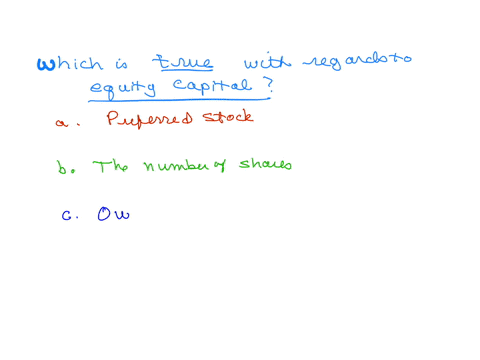 Which is true with regards to
equity capital?
a. Preferred stock
b. The number of shares
c. Ow